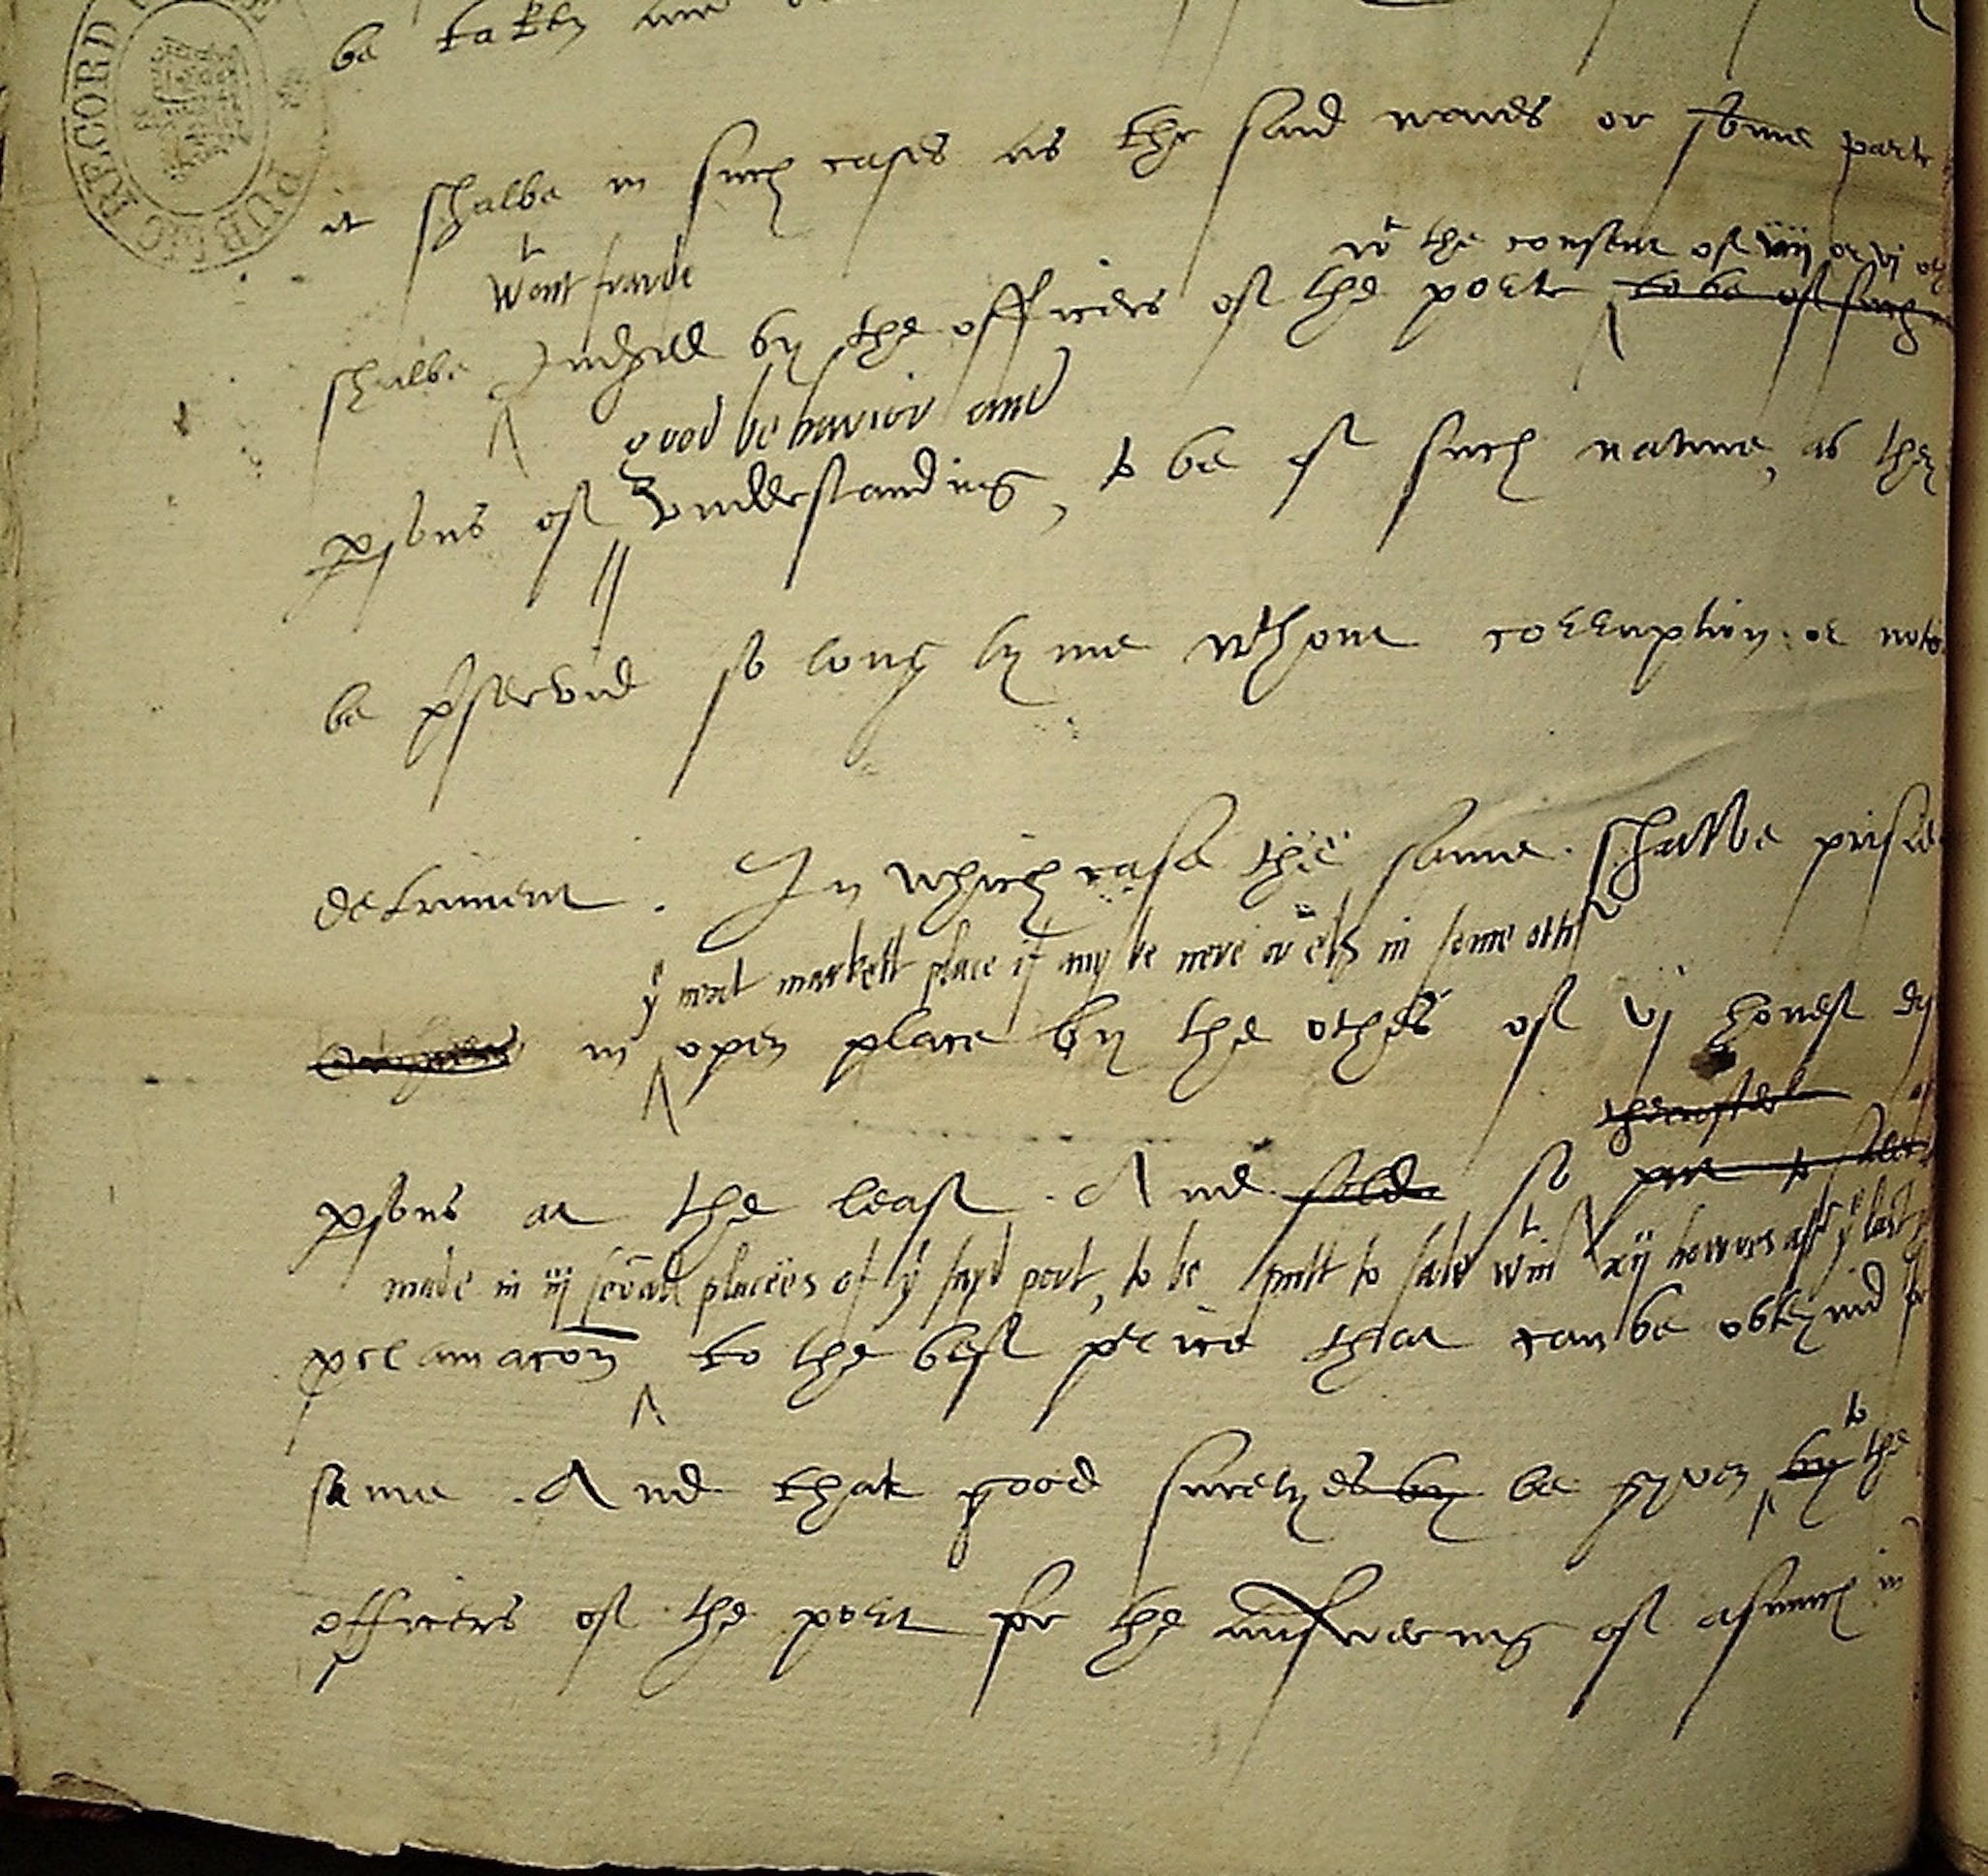 PUBLIC RECORD
be taken and
it shalbe in such cases as the said wares or some parte
wt the consent of iiij or vj
wtout fraude
shalbe Judged by the officers of the port to be of such
good behavior and
psons of vnderstanding, to be of such nature, as they
be pserved so long tyme wthout corruption or
detriment . In which case the same shalbe prised
ye next markett place if any be nere or els in some other
in open place by the othes of vj honest
therafter
psons at the least . And solde so put to sale
made in iij severall places of ye sayd port, to be putt to sale wtin xij howres aftr ye last
pclamacon to the best price that can be obteynid
to
same . And that good suretyes by be gyven by the
officers of the port for the answering of asmuch in